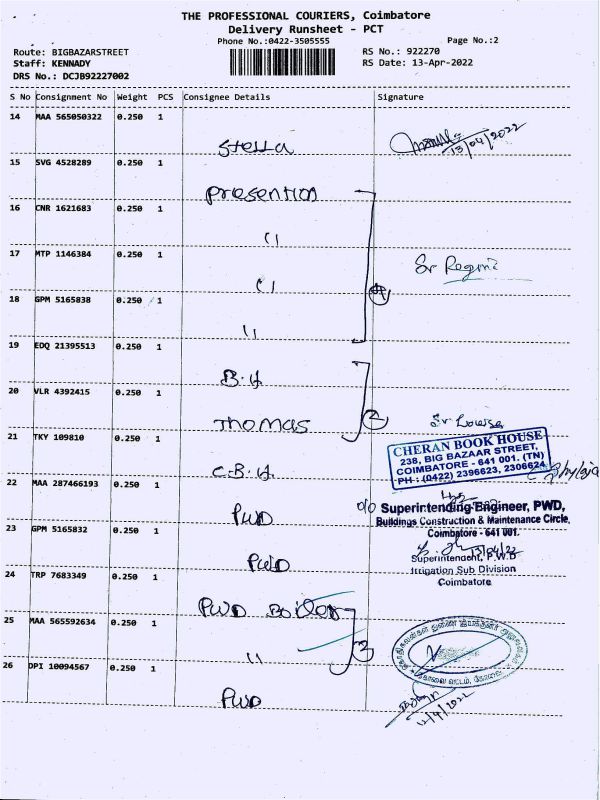 THE PROFESSIONAL COURIERS, Coimbatore
Delivery Runsheet - PCT
Phone No.:0422-3505555
Page No.:2
Route: BIGBAZARSTREET
RS No.: 922270
Staff: KENNADY
RS Date: 13-Apr-2022
DRS No.: DCJB92227002
S No Consignment No Weight PCS Consignee Details Signature
14 MAA 565050322 0.250 1
Stella
13/04/2022
15 SVG 4528289 0.250 1
Presention
16 CNR 1621683 0.250 1
17 MTP 1146384 0.250 1
Sr Regina
18 GPM 5165838 0.250 1
4
19 EDQ 21395513 0.250 1
B.H
20 VLR 4392415 0.250 1
Thomas
2
21 TKY 109810 0.250 1
CHERAN BOOK HOUSE
238, BIG BAZAAR STREET,
COIMBATORE - 641 001. (TN)
PH : (0422) 2396623, 2306624
C.B.H
22 MAA 287466193 0.250 1
PWD
o/o Superintending Engineer, PWD,
Buildings Construction & Maintenance Circle,
Coimbatore - 641 001.
23 GPM 5165832 0.250 1
PWD
13/04/22
Superintendent, P.W.D
Irrigation Sub Division
Coimbatore
24 TRP 7683349 0.250 1
PWD Boiler
25 MAA 565592634 0.250 1
"
3
26 DPI 10094567 0.250 1
PWD
12/4/2022